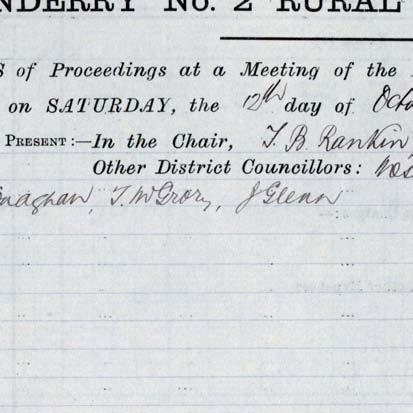 NDERRY No. 2 RURAL
S of Proceedings at a Meeting of the
on SATURDAY, the 12th day of Octo
PRESENT:—In the Chair, T. B. Rankin
Other District Councillors:
naghan, T. McGrory, J Glenn